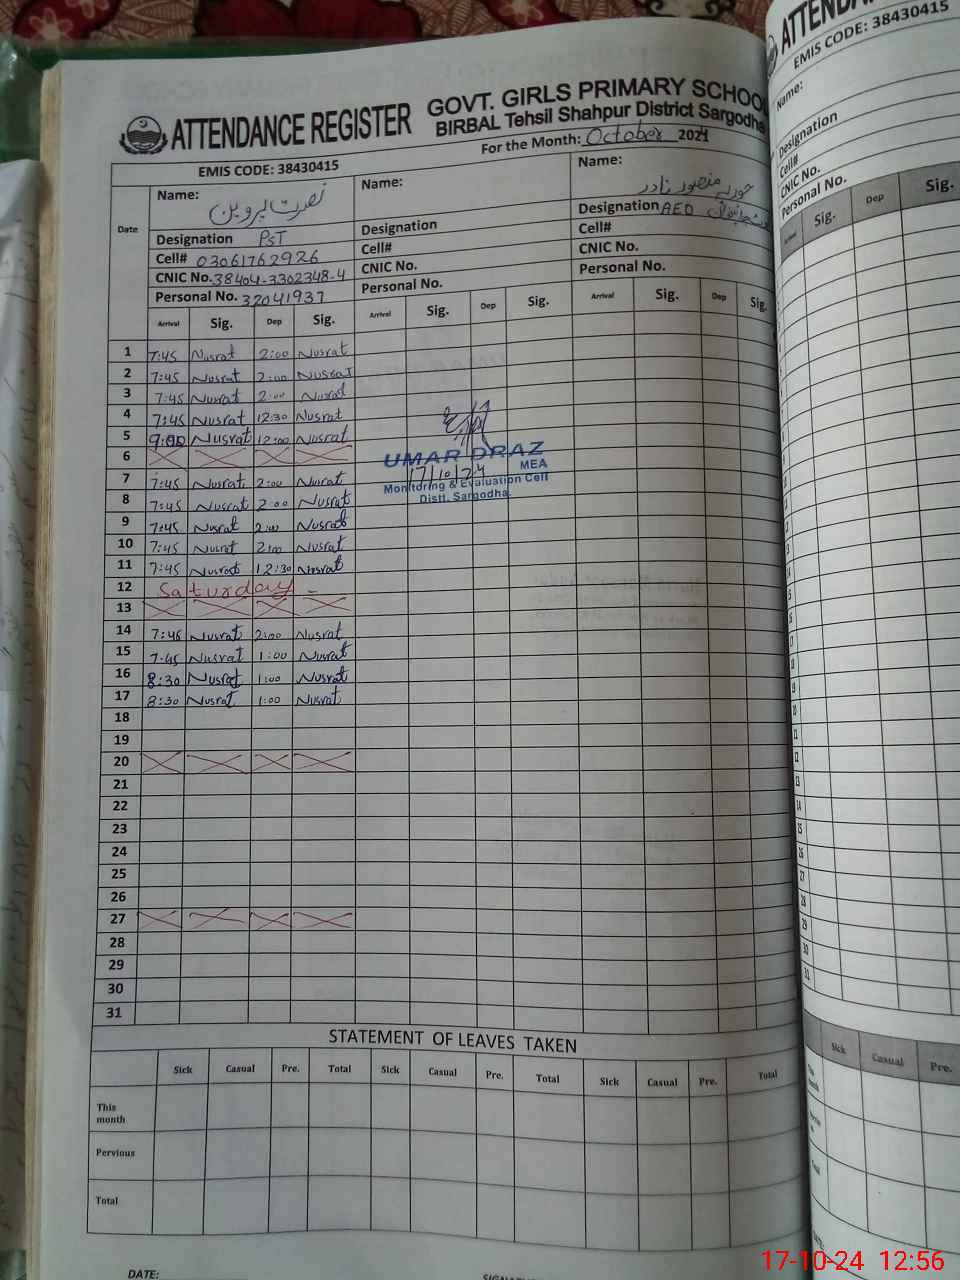 ATTENDANCE REGISTER
GOVT. GIRLS PRIMARY SCHOOL
BIRBAL Tehsil Shahpur District Sargodha
EMIS CODE: 38430415
For the Month: October 2024
Date
Name: نصرت پروین
Designation PST
Cell# 03061762926
CNIC No. 38404-3302348-4
Personal No. 32041937
Name:
Designation
Cell#
CNIC No.
Personal No.
Name: حوریہ منصور نادر
Designation AEO
Cell#
CNIC No.
Personal No.
Arrival Sig. Dep Sig. Arrival Sig. Dep Sig. Arrival Sig. Dep Sig.
1 7:45 Nusrat 2:00 Nusrat
2 7:45 Nusrat 2:00 Nusrat
3 7:45 Nusrat 2:00 Nusrat
4 7:45 Nusrat 12:30 Nusrat
5 9:00 Nusrat 12:00 Nusrat
6
7 7:45 Nusrat 2:00 Nusrat
8 7:45 Nusrat 2:00 Nusrat
9 7:45 Nusrat 2:00 Nusrat
10 7:45 Nusrat 2:00 Nusrat
11 7:45 Nusrat 12:30 Nusrat
12 Saturday -
13
14 7:45 Nusrat 2:00 Nusrat
15 7:45 Nusrat 1:00 Nusrat
16 8:30 Nusrat 1:00 Nusrat
17 8:30 Nusrat 1:00 Nusrat
18
19
20
21
22
23
24
25
26
27
28
29
30
31
UMAR DRAZ
MEA
17/10/24
Monitoring & Evaluation Cell
Distt. Sargodha
STATEMENT OF LEAVES TAKEN
Sick Casual Pre. Total Sick Casual Pre. Total Sick Casual Pre. Total
This month
Pervious
Total
DATE:
ATTENDA
EMIS CODE: 38430415
Name:
Designation
Cell#
CNIC No.
Personal No.
Arrival Sig. Dep Sig.
Sick Casual Pre.
17-10-24 12:56